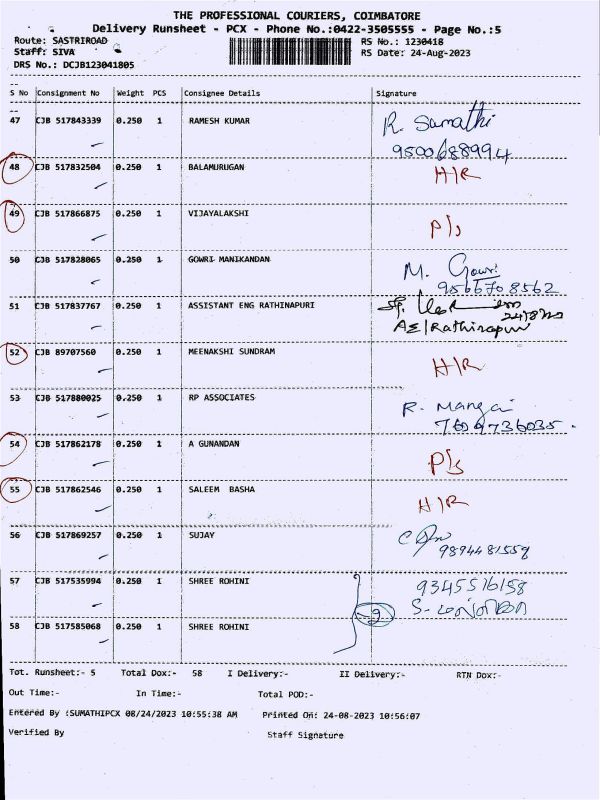 THE PROFESSIONAL COURIERS, COIMBATORE
Delivery Runsheet - PCX - Phone No.:0422-3505555 - Page No.:5
Route: SASTRIROAD RS No.: 1230418
Staff: SIVA RS Date: 24-Aug-2023
DRS No.: DCJB123041805
S No Consignment No Weight PCS Consignee Details Signature
47 CJB 517843339 0.250 1 RAMESH KUMAR R. Sumathi
9500688994
48 CJB 517832504 0.250 1 BALAMURUGAN H/R
49 CJB 517866875 0.250 1 VIJAYALAKSHI P/s
50 CJB 517828065 0.250 1 GOWRI MANIKANDAN M. Gowri
9566708562
51 CJB 517837767 0.250 1 ASSISTANT ENG RATHINAPURI
AE/Rathinapuri
52 CJB 89707560 0.250 1 MEENAKSHI SUNDRAM H/R
53 CJB 517880025 0.250 1 RP ASSOCIATES R. Mangai
7609736035
54 CJB 517862178 0.250 1 A GUNANDAN P/s
55 CJB 517862546 0.250 1 SALEEM BASHA H/R
56 CJB 517869257 0.250 1 SUJAY
9894481559
57 CJB 517535994 0.250 1 SHREE ROHINI 9345516158
58 CJB 517585068 0.250 1 SHREE ROHINI
Tot. Runsheet:- 5 Total Dox:- 58 I Delivery:- II Delivery:- RTN Dox:-
Out Time:- In Time:- Total POD:-
Entered By :SUMATHIPCX 08/24/2023 10:55:38 AM Printed On: 24-08-2023 10:56:07
Verified By Staff Signature